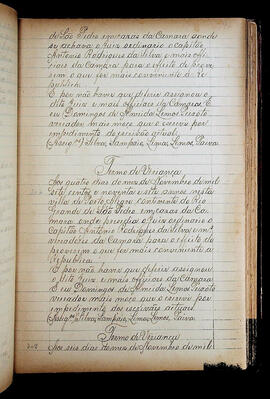 de São Pedro em casas da Camara aonde
se achava o Juiz ordinario o Capitão
Antonio Rodrigues da Silva e mais offi-
ciaes da Camara para o effeito de prove-
rem o que for mais conveniente á re
publica.
E por não haver que deferir assignou o
dito Juiz e mais officiaes da Camara E
eu Domingos de Almeida Lemos Peixoto
vereador mais moço que o escrevi por
impedimento do escrivão actual.
Silva, Sampaio, Lima, Lemos, Paiva.
Termo de Vereança
Aos quatro dias do mez de Novembro de mil
sete centos e noventa e sete annos nesta
villa de Porto Alegre Continente do Rio
Grande de São Pedro em casas da Ca-
mara, onde presidia o Juiz ordinario o
Capitão Antonio Rodrigues da Silva e
vereadores da Camara para o effeito de
proverem o que for mais conveniente á
Republica.
E por não haver que deferir assignou
o dito Juiz e mais officiaes da Camara
E eu Domingos de Almeida Lemos Peixoto
vereador mais moço que o escrevi por
impedimento do escrivão actual.
Silva, Sampaio, Lima, Lemos, Paiva
Termo de Vereança
Aos seis dias do mez de Novembro de mil